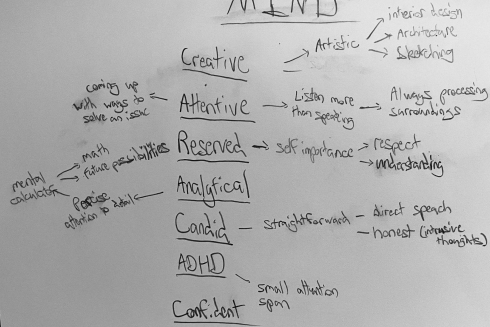 MIND
interior design
Architecture
Sketching
Artistic
Creative
coming up
with ways to
solve an issue
Attentive
Listen more
than speaking
Always processing
surroundings
Reserved
self importance
respect
understanding
math
future possibilities
mental
calculator
Percise
attention to details
Analytical
Candid
straightforward
direct speach
honest (intrusive
thoughts)
ADHD
small attention
span
Confident